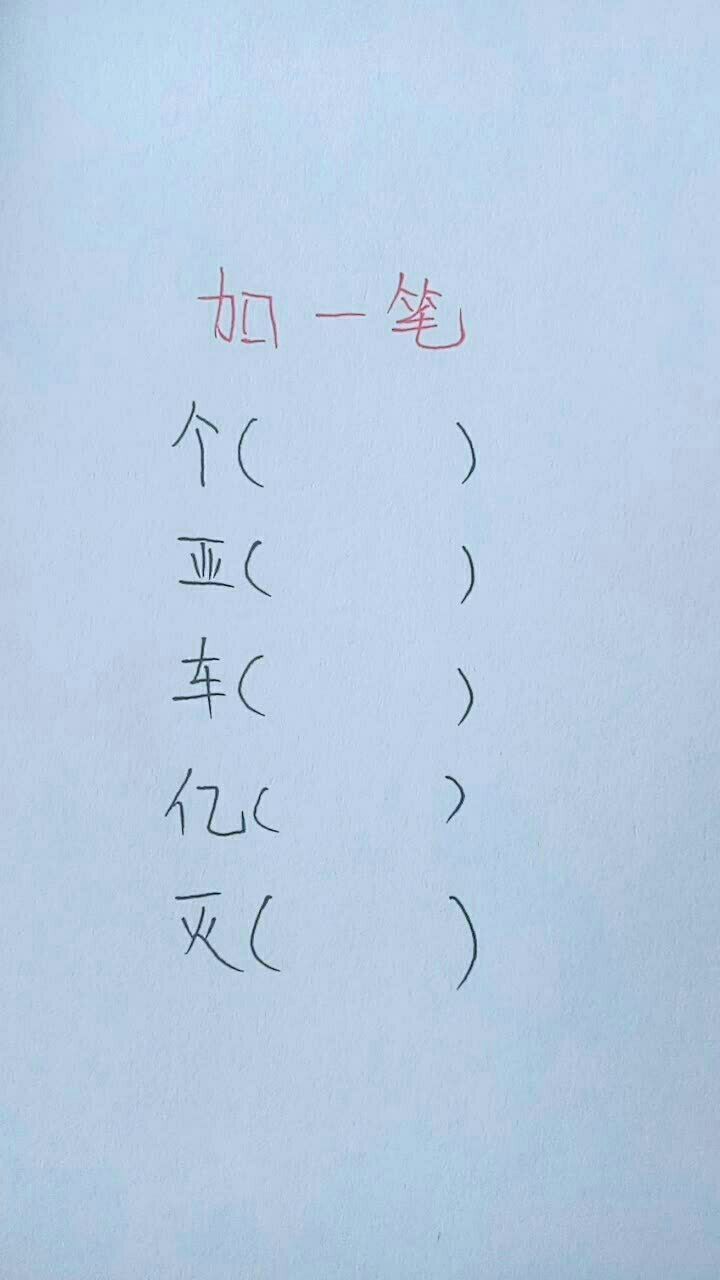 加一笔
个( )
亚( )
车( )
亿( )
灭( )